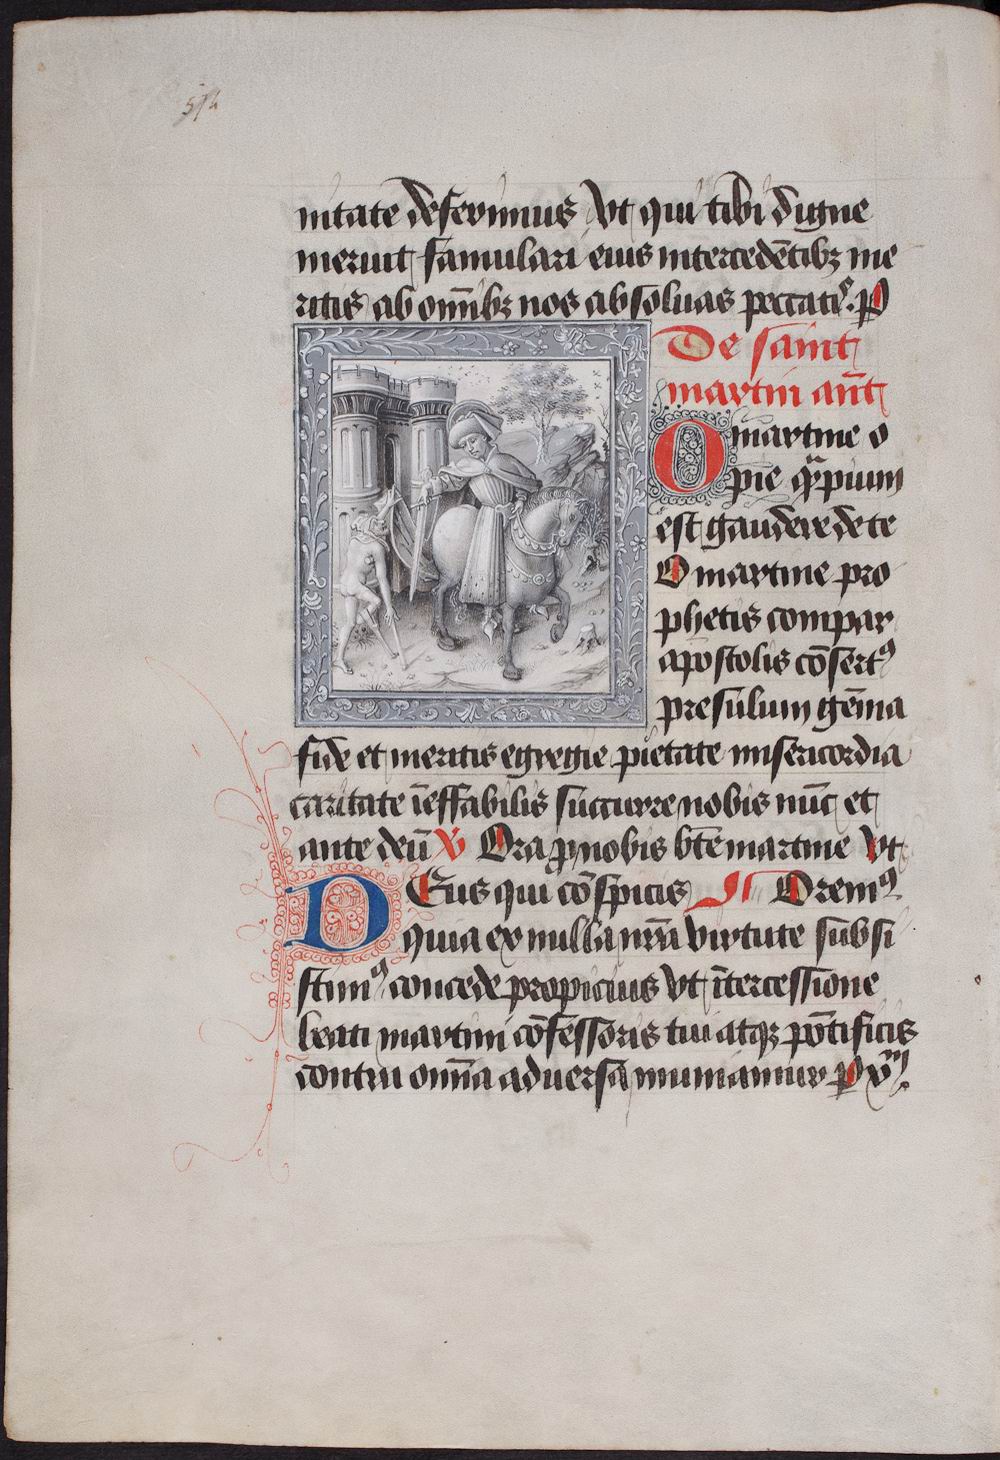 nitate deferimus Vt qui tibi digne
meruit famulari eius intercedētibꝫ me
ritis ab om̄ibꝫ nos absoluas peccatis. P
De saint
martin an̄t
O martine o
pie q̄ pium
est gaudere de te
O martine pro
phetis compar
apostolis cōsertꝰ
presulum gēma
fide et meritis egregie pietate misericordia
caritate īeffabilis succurre nobis nūc et
ante deū V Ora ꝓ nobis bt̄e martine Vt
DEus qui cōspicis Oremꝰ
quia ex nulla nr̄a virtute subsi
stimꝰ concede propicius Vt ītercessione
beati martini cōfessoris tui atqꝫ pōtificis
contra omīa aduersa muniamur P xp̄m